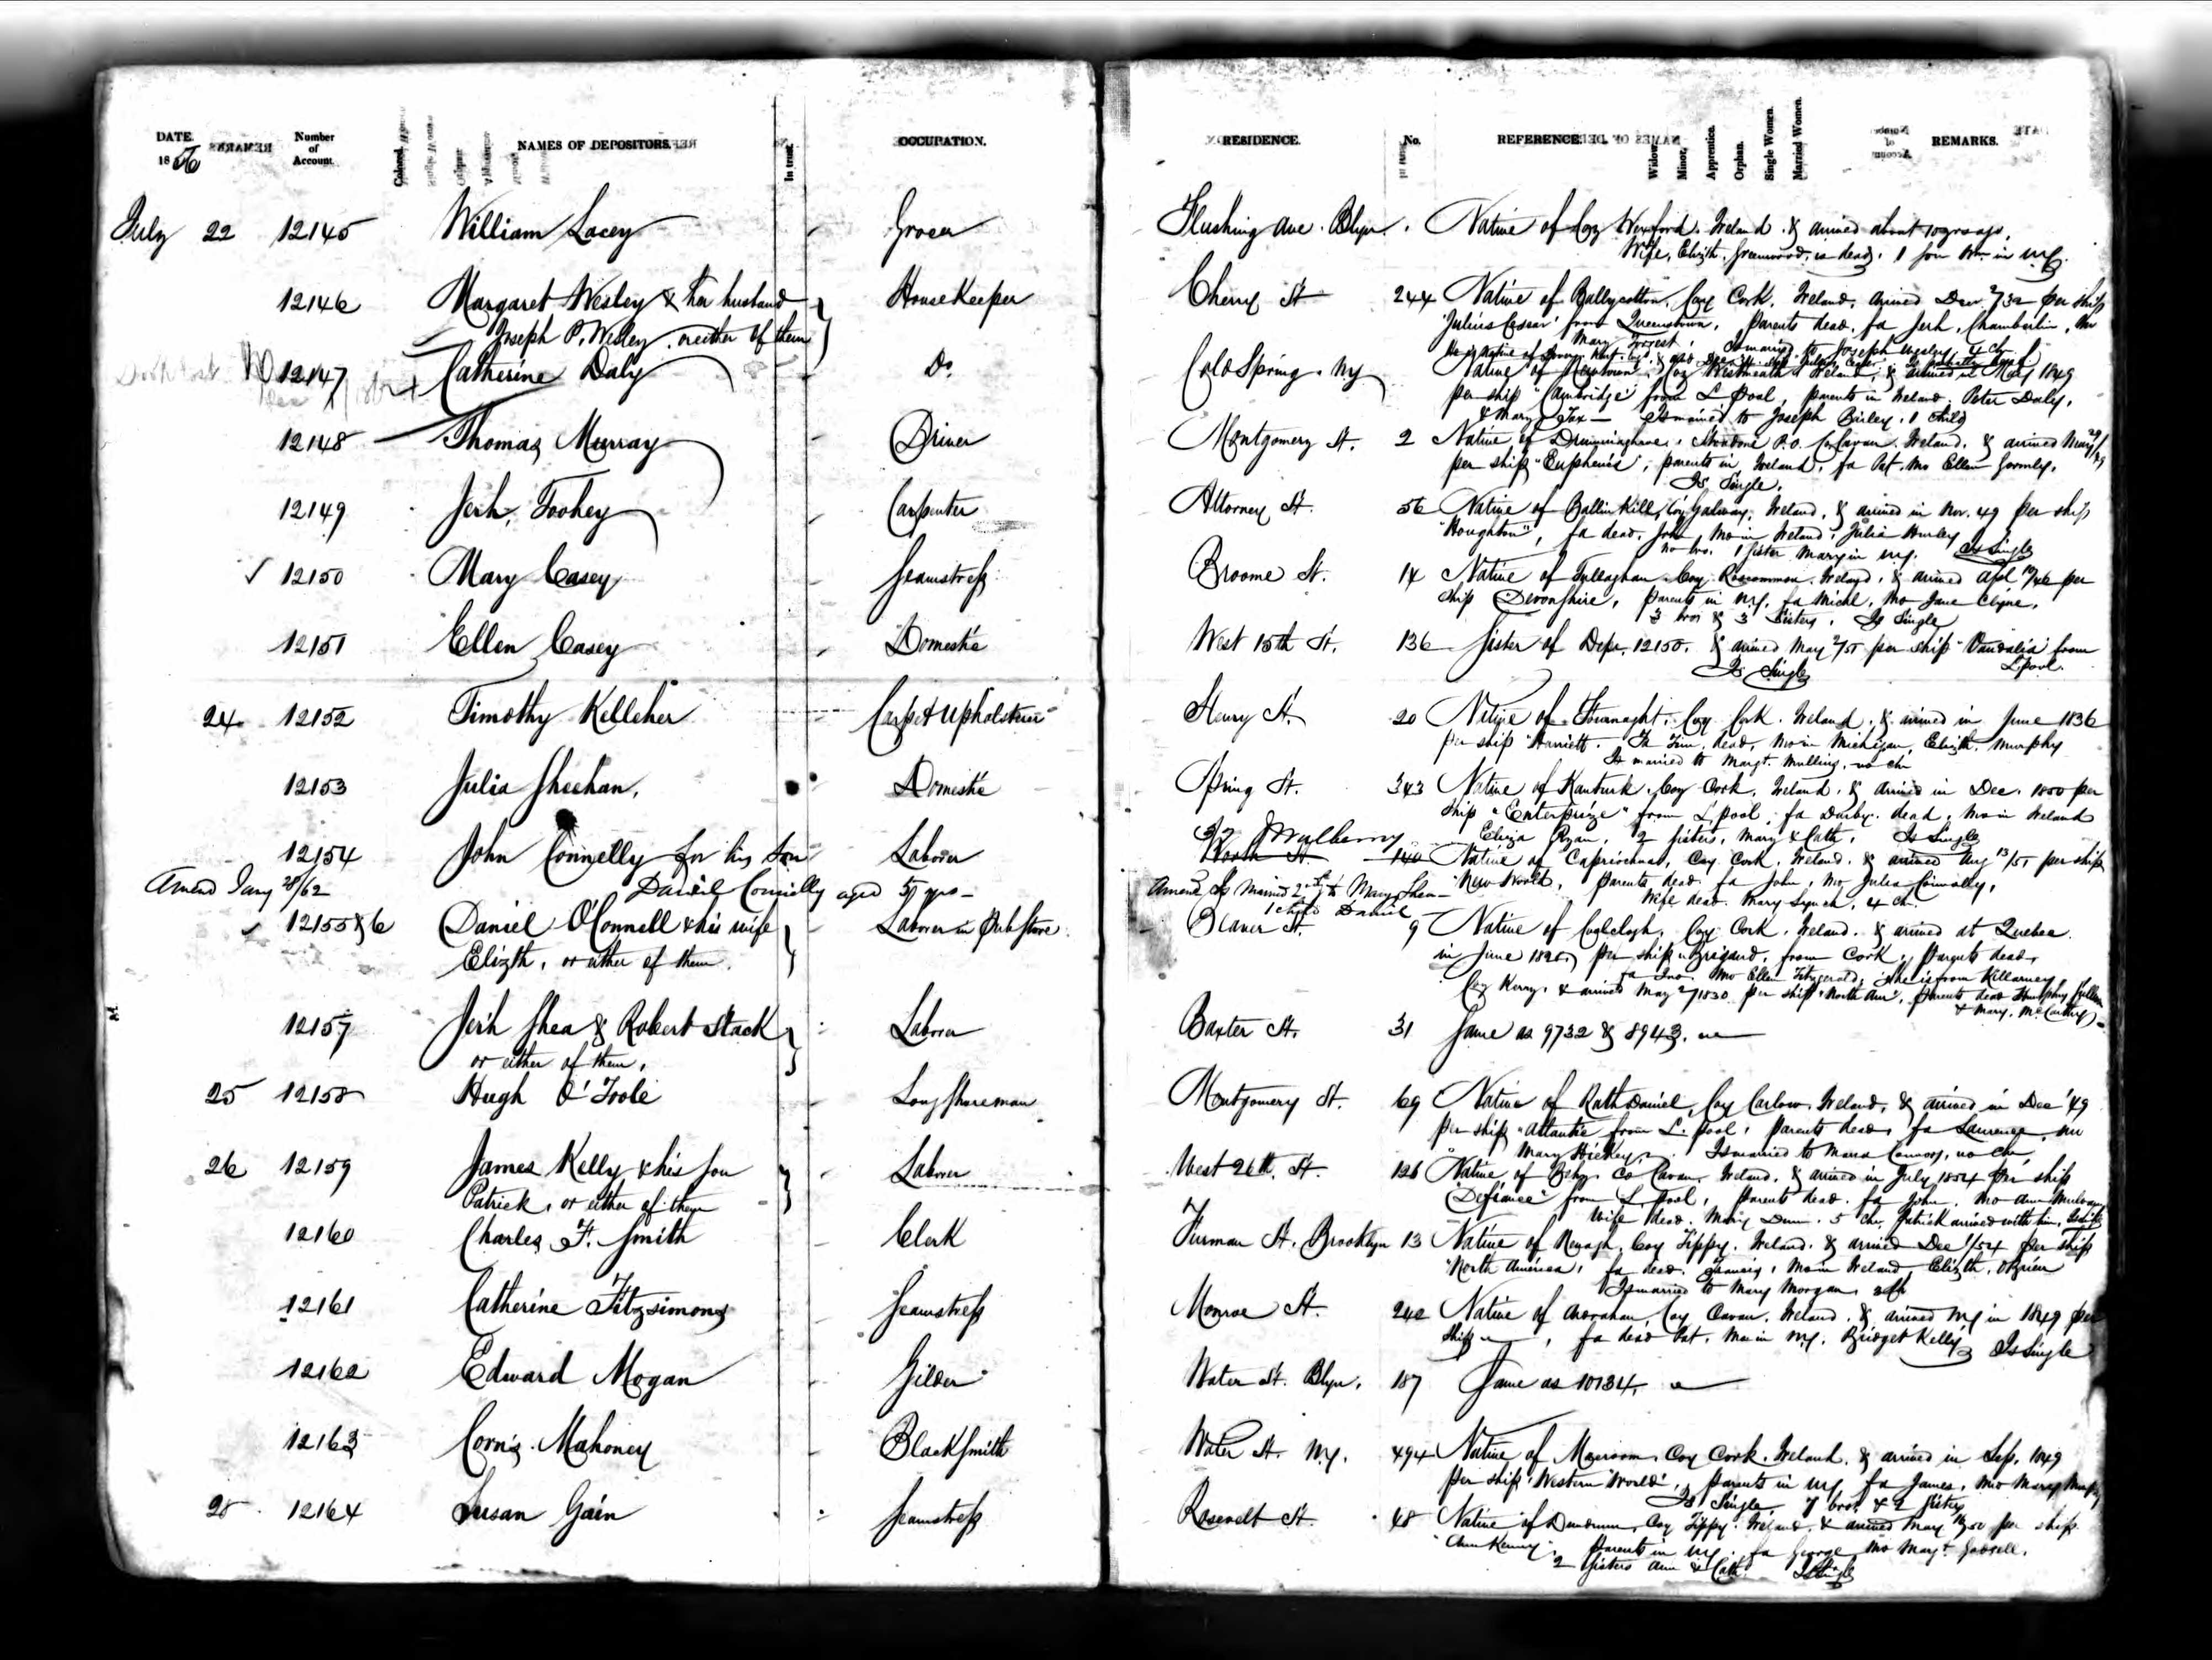 DATE. Number of Account. Colored. NAMES OF DEPOSITORS. In trust. OCCUPATION. RESIDENCE. No. REFERENCE. Widow. Minor. Apprentice. Orphan. Single Women. Married Women. REMARKS.
1856
July 22 12145 William Lacey Grocer Flushing Ave. Blyn. Native of Coy Wexford. Ireland. & arrived about 10 yrs ago.
Wife, Elizth. Greenwood, is dead. 1 son Wm in NY.
12146 Margaret Wesley & her husband Housekeeper Cherry St 244 Native of Ballycotton, Coy Cork, Ireland, arrived Dec. /32 per ship
Joseph P. Wesley or either of them "Julius Cesar" from Queenstown. Parents dead, fa Jerh. Chamberlin, Mo
Mary Forrest. Is married to Joseph Wesley, 4 ch
12147 Catherine Daly Do. Cold Spring. NY Native of Newtown, Coy Westmeath Ireland, & arrived in May 1849
per ship "Cambridge" from L'pool, parents in Ireland. Peter Daly,
& Mary Fox — Is married to Joseph Bailey. 1 child
12148 Thomas Murray Driver Montgomery St. 2 Native of P.O. Coy Cavan. Ireland. & arrived May 29/49
per ship "Euphemia", parents in Ireland, fa Pat. Mo Ellen Gormly.
Is Single.
12149 Jerh. Toohey Carpenter Attorney St. 56 Native of Ballinkill, Coy Galway, Ireland, & arrived in Nov. 49 per ship
"Houghton", fa dead. John, Mo in Ireland, Julia Hurley
no bro. 1 sister Mary in NY. Is Single
12150 Mary Casey Seamstress Broome St. 14 Native of Tullaghan Coy Roscommon Ireland, & arrived Apl /46 per
ship Devonshire, parents in NY. fa Michl. Mo Jane Clyne.
3 bros & 3 Sisters. Is Single
12151 Ellen Casey Domestic West 15th St. 136 Sister of Depr. 12150. & arrived May /51 per ship "Vandalia" from
L'pool.
Is Single
24 12152 Timothy Kelleher Carpet Upholsterer Henry St. 20 Native of Coy Cork. Ireland. & arrived in June 1836
per ship "Harriett. Fa Tim. dead, Mo in Michigan, Elizth. Murphy
Is married to Margt. Mullins, no ch
12153 Julia Sheehan. Domestic Spring St. 343 Native of Kanturk, Coy Cork, Ireland, & arrived in Dec. 1850 per
ship "Enterprize" from L'pool. fa Darby dead. Mo in Ireland
Eliza Ryan. 2 sisters, Mary & Cath. Is Single
12154 John Connelly for his Son Laborer Mulberry North St. 140 Native of Coy Cork, Ireland. & arrived Aug 13/51 per ship
Amend Jany 28/62 Daniel Connelly aged 5 yrs — Amend. Is Married 2nd to Mary Shea — "New World", parents dead. fa John, Mo Julia Connolly,
1 child Daniel Wife dead. Mary Lynch, 4 ch.
12155 & 6 Daniel O'Connell & his wife Laborer in Pub Store Beaver St. 9 Native of Coy Cork, Ireland. & arrived at Quebec
Elizth, or either of them. in June 1826, per ship Brigand, from Cork, Parents dead,
fa Jno. Mo Ellen Fitzgerald, she is from Killarney
Coy Kerry, & arrived May /1830 per ship North Amr., parents dead Humphry
& Mary McCarthy
12157 Jerh Shea & Robert Stack Laborer Baxter St. 31 Same as 9732 & 8943.
or either of them.
25 12158 Hugh O'Toole Longshoreman Montgomery St. 69 Native of Rathdaniel, Coy Carlow, Ireland, & arrived in Dec '49
per ship "Atlantic from L.pool, parents dead, fa Laurence, Mo
Mary Hickey. Is married to Maria Connors, no ch
26 12159 James Kelly & his son Laborer West 26th St. 126 Native of Co Cavan, Ireland, & arrived in July 1854 per ship
Patrick, or either of them "Defiance" from L'pool, parents dead. fa John. Mo Ann
Wife dead. Mary Dunn. 5 ch. Patrick arrived with him,
12160 Charles F. Smith Clerk Furman St. Brooklyn 13 Native of Nenagh, Coy Tippy. Ireland. & arrived Dec 1/54 per ship
"North America, fa dead. Francis, Mo in Ireland, Elizth. O'Brien
Is married to Mary Morgan
12161 Catherine Fitzsimons Seamstress Monroe St. 242 Native of Coy Cavan. Ireland. & arrived NY in 1849 per
ship — , fa dead Pat. Mo in NY. Bridget Kelly Is Single
12162 Edward Mogan Gilder Water St. Blyn. 187 Same as 10134.
12163 Corns. Mahoney Blacksmith Water St. NY. 494 Native of Macroom, Coy Cork. Ireland. & arrived in Sep. 1849
per ship "Western World", parents in NY, fa James, Mo Mary Murphy
Is Single. 7 bros & 2 sisters
28 12164 Susan Gain Seamstress Roosevelt St. 48 Native of Dundrum, Coy Tippy. Ireland, & arrived May /50 per ship
Parents in NY. fa George Mo Margt.
2 Sisters Ann & Cath. Is Single